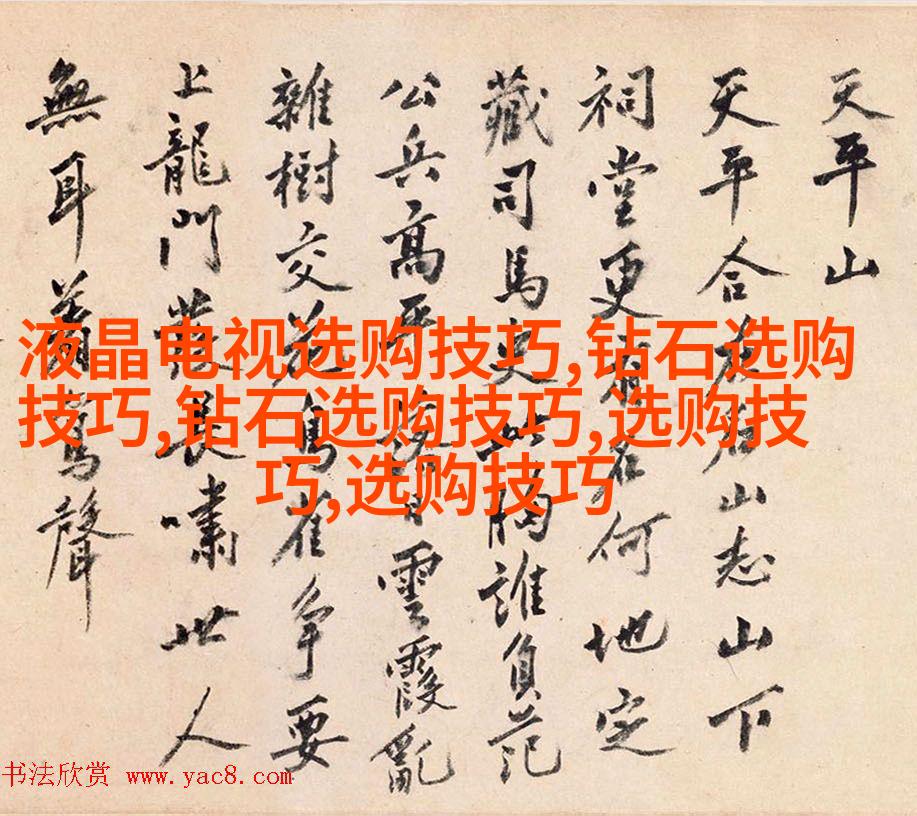 天平山
天平合名山志山下
祠堂更在何地定
藏司馬史此胸誰負范
公兵高平雲霞亂
雜樹交花鳥雀爭要
上龍門長嘯世人
無耳聲
液晶电视选购技巧,钻石选购
技巧,钻石选购技巧,选购技
巧,选购技巧
书法欣赏 www.yac8.com